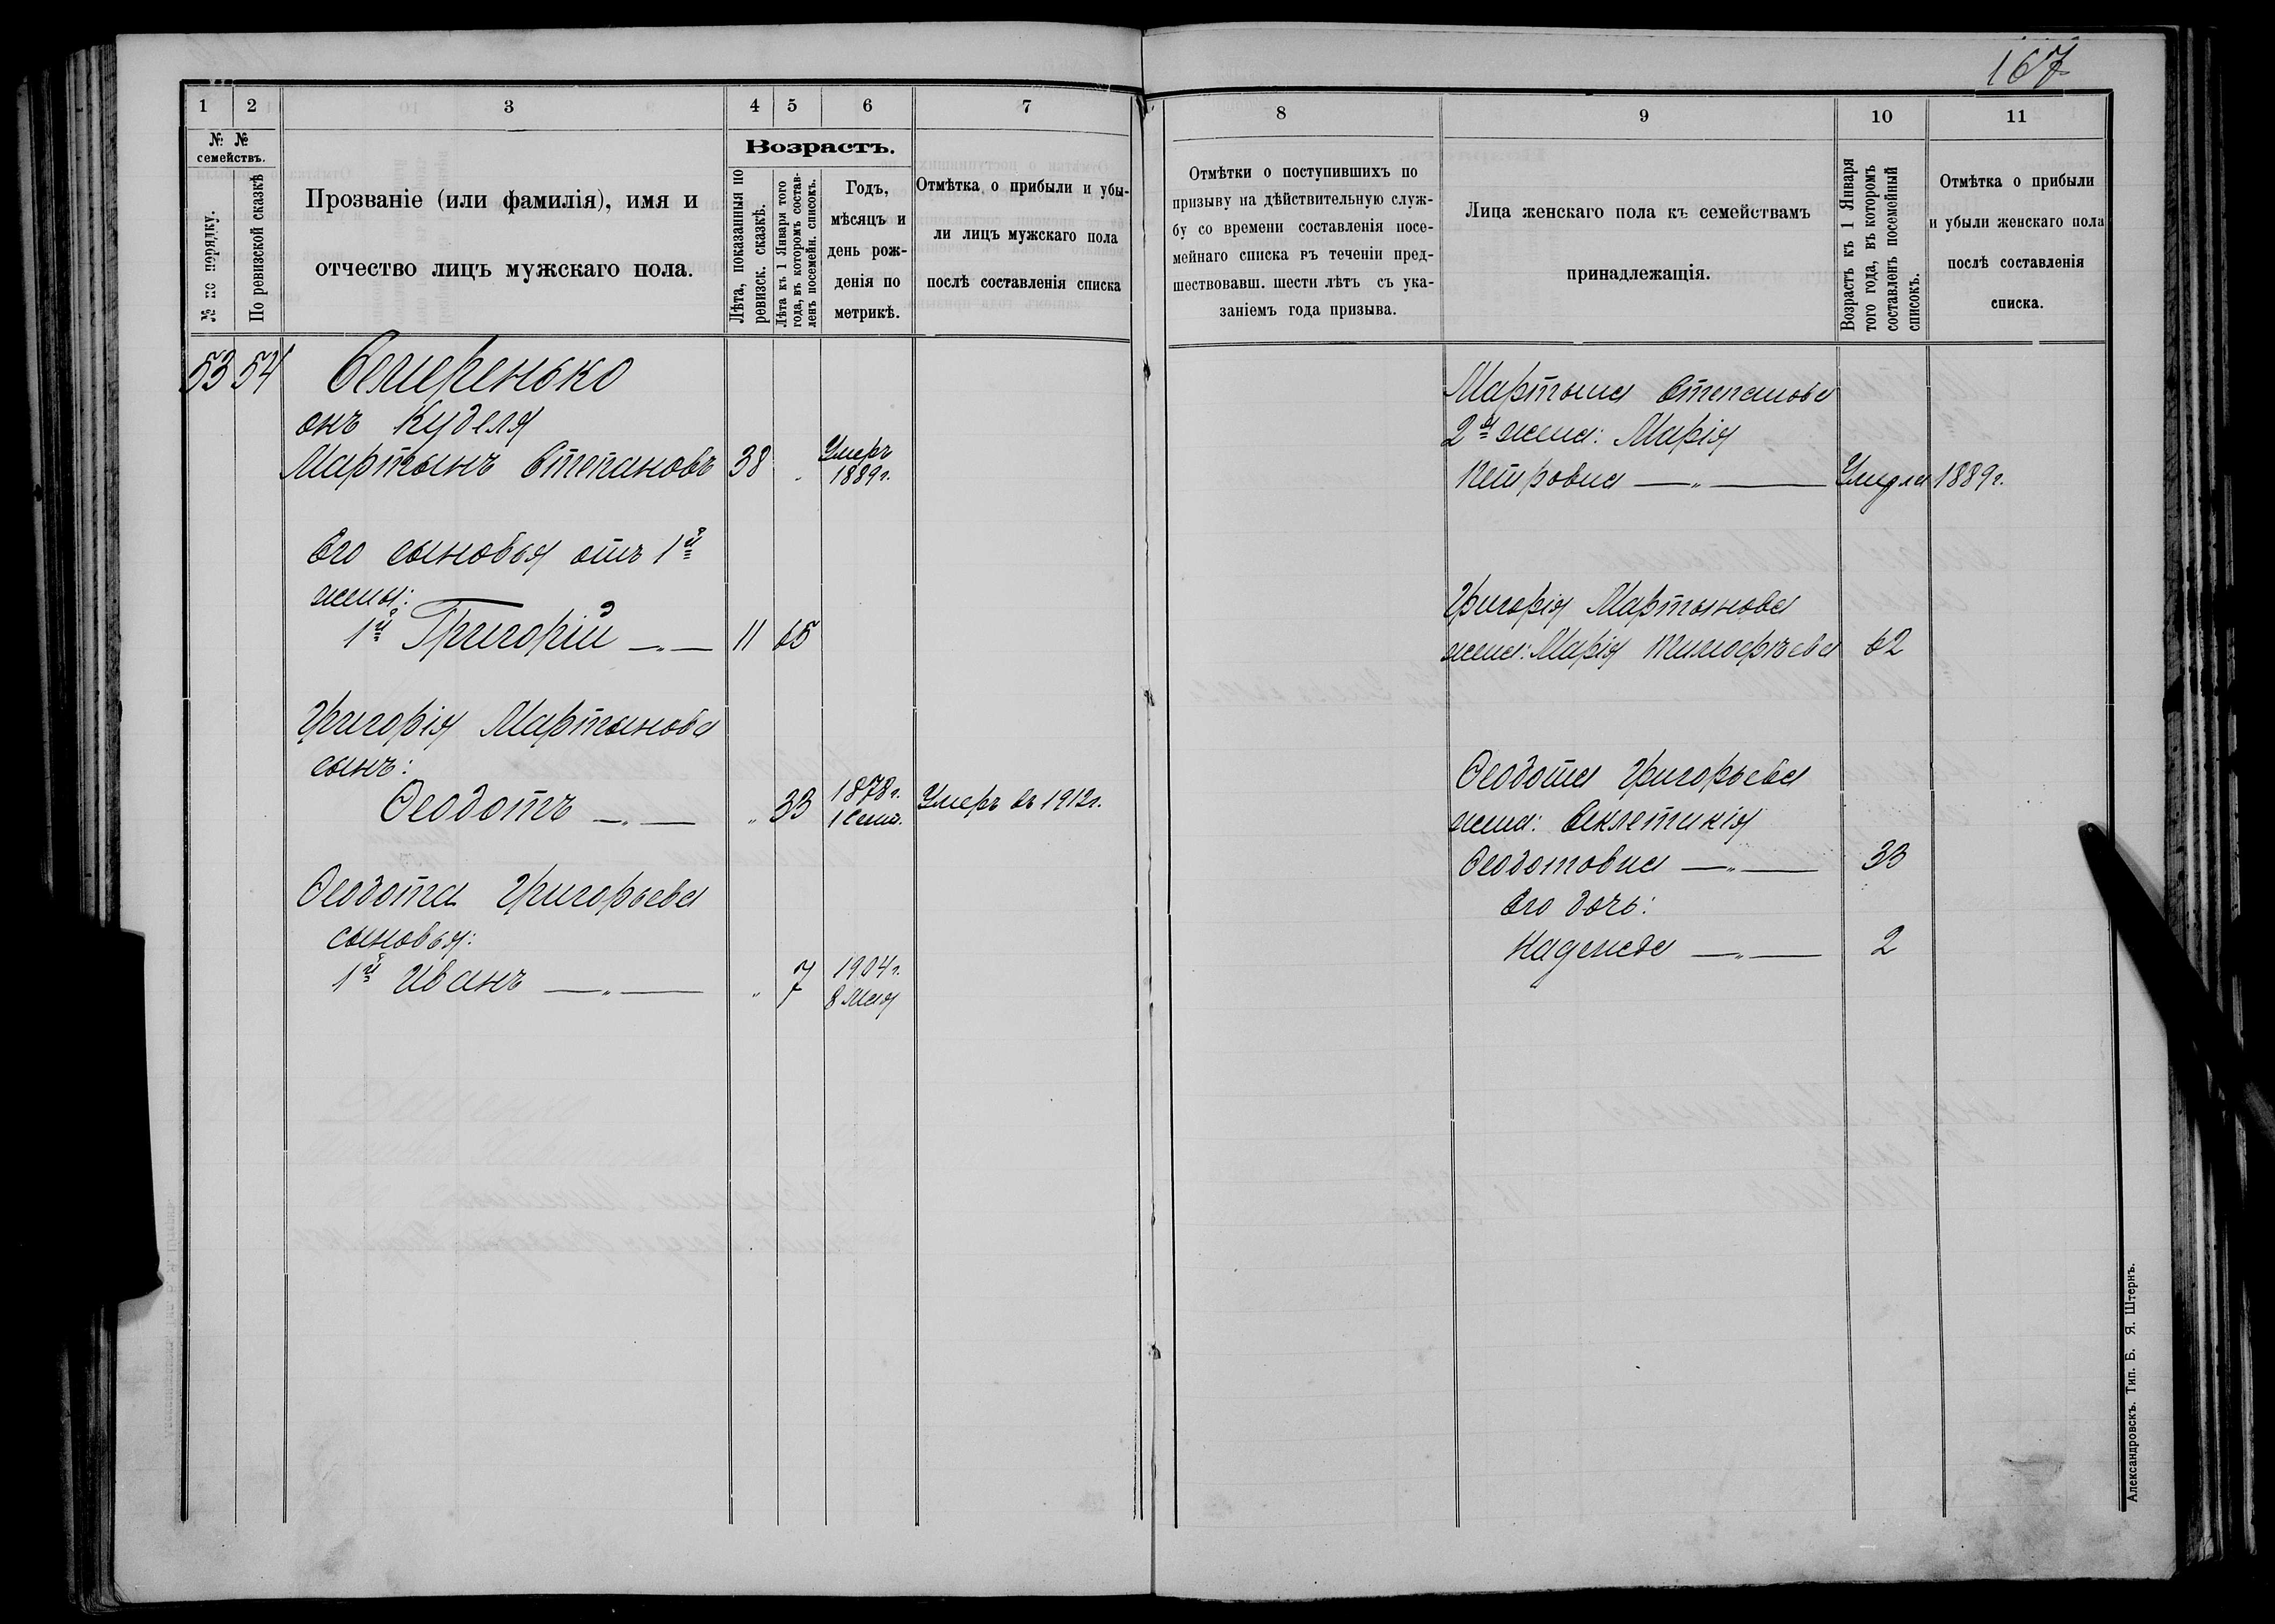 167
1
2
3
4
5
6
7
№ №
семействъ.
№ по порядку.
По ревизской сказкѣ
Прозваніе (или фамилія), имя и
отчество лицъ мужскаго пола.
Возрастъ.
Лѣта, показанныя по
ревизск. сказкѣ.
Лѣта къ 1 Января того
года, въ которомъ состав-
ленъ посемейн. списокъ.
Годъ,
мѣсяцъ и
день рож-
денія по
метрикѣ.
Отмѣтка о прибыли и убы-
ли лицъ мужскаго пола
послѣ составленія списка
53 54 Семеренько
онъ Куделя
Мартынъ Степановъ 38 Умеръ
1889г.
Его сыновья отъ 1й
жены:
1й Григорій —„— 11 65
Григорія Мартынова
сынъ:
Ѳеодотъ —„— „ 33 1878г.
1 Сент. Умеръ въ 1912г.
Ѳеодота Григорьева
сыновья:
1й Иванъ —„— „ 7 1904г.
8 Мая
8
9
10
11
Отмѣтки о поступившихъ по
призыву на дѣйствительную служ-
бу со времени составленія посе-
мейнаго списка въ теченіи пред-
шествовавш. шести лѣтъ съ ука-
заніемъ года призыва.
Лица женскаго пола къ семействамъ
принадлежащія.
Возрастъ къ 1 Января
того года, въ которомъ
составленъ посемейный
списокъ.
Отмѣтка о прибыли
и убыли женскаго пола
послѣ составленія
списка.
Мартына Степанова
2я жена: Марія
Петровна —„— Умерла 1889г.
Григорія Мартынова
жена: Марія Тимофѣева 62
Ѳеодота Григорьева
жена: Секлетикія
Ѳеодотовна —„— 33
Его дочь:
Надежда —„— 2
Александровскъ. Тип. Б. Я. Штернъ.